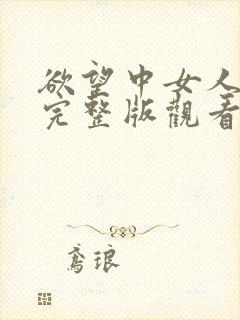 欲望中女人
完整版觀看
鳶琅